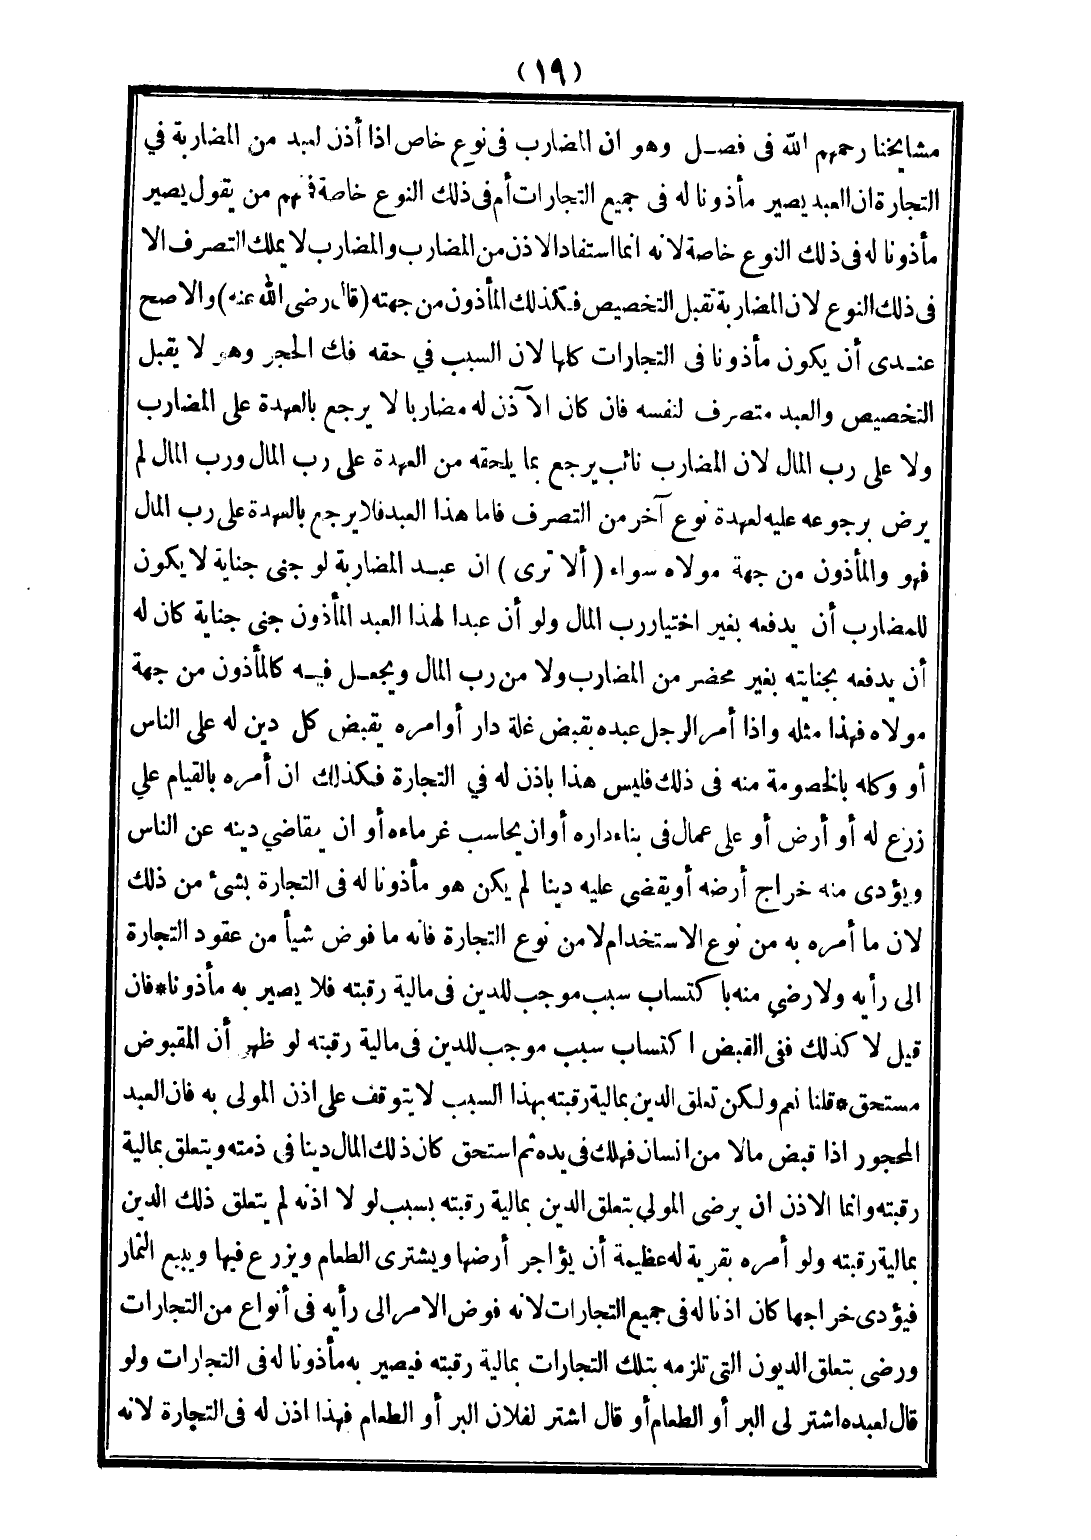 (١٩)
مشايخنا رحمهم الله فى فصـل وهو ان المضارب فى نوع خاص اذا أذن لعبد من المضاربة في
التجارة ان العبد يصير مأذونا له فى جميع التجارات أم فى ذلك النوع خاصة فمنهم من يقول يصير
مأذونا له فى ذلك النوع خاصة لانه انما استفاد الاذن من المضارب والمضارب لا يملك التصرف الا
فى ذلك النوع لان المضاربة تقبل التخصيص فـكذلك المأذون من جهته (قال رضى الله عنه) والاصح
عنـدى أن يكون مأذونا فى التجارات كلها لان السبب في حقه فك الحجر وهو لا يقبل
التخصيص والعبد متصرف لنفسه فان كان الآذن له مضاربا لا يرجع بالعهدة على المضارب
ولا على رب المال لان المضارب نائب يرجع بما يلحقه من العهدة على رب المال ورب المال لم
يرض برجوعه عليه لعهدة نوع آخر من التصرف فاما هذا العبد فلا يرجع بالعهدة على رب المال
فهو والمأذون من جهة مولاه سواء (ألا ترى) ان عبـد المضاربة لو جنى جناية لا يكون
للمضارب أن يدفعه بغير اختيار رب المال ولو أن عبدا لهذا العبد المأذون جنى جناية كان له
أن يدفعه بجنايته بغير محضر من المضارب ولا من رب المال ويجعـل فيـه كالمأذون من جهة
مولاه فهذا مثله واذا أمر الرجل عبده بقبض غلة دار أو امره بقبض كل دين له على الناس
أو وكله بالخصومة منه فى ذلك فليس هذا باذن له في التجارة فـكذلك ان أمره بالقيام علي
زرع له أو أرض أو على عمال فى بناء داره أو ان يحاسب غرماءه أو ان يقاضي دينه عن الناس
ويؤدى منه خراج أرضه أو يقضى عليه دينا لم يكن هو مأذونا له فى التجارة بشئ من ذلك
لان ما أمره به من نوع الاستخدام لا من نوع التجارة فانه ما فوض شيأ من عقود التجارة
الى رأيه ولا رضي منه باكتساب سبب موجب للدين فى مالية رقبته فلا يصير به مأذونا*فان
قيل لا كذلك ففى القبض اكتساب سبب موجب للدين فى مالية رقبته لو ظهر أن المقبوض
مستحق*قلنا نعم ولـكن تعلق الدين بمالية رقبته بهذا السبب لا يتوقف على اذن المولى به فان العبد
المحجور اذا قبض مالا من انسان فهلك فى يده ثم استحق كان ذلك المال دينا فى ذمته ويتعلق بمالية
رقبته وانما الاذن ان يرضى المولي بتعلق الدين بمالية رقبته بسبب لو لا اذنه لم يتعلق ذلك الدين
بمالية رقبته ولو أمره بقرية له عظيمة أن يؤاجر أرضها ويشترى الطعام ويزرع فيها ويبيع الثمار
فيؤدى خراجها كان اذنا له فى جميع التجارات لانه فوض الامر الى رأيه فى أنواع من التجارات
ورضى بتعلق الديون التى تلزمه بتلك التجارات بمالية رقبته فيصير به مأذونا له فى التجارات ولو
قال لعبده اشتر لى البر أو الطعام أو قال اشتر لفلان البر أو الطعام فهذا اذن له فى التجارة لانه